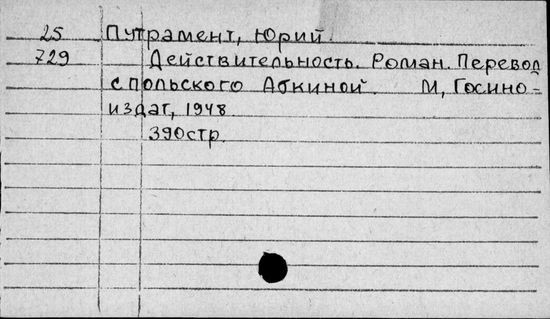 25 Путрамент, Юрий.
729 Действительность. Роман. Перевод
с польского Абкиной. М, Госино-
издат, 1948.
390стр.